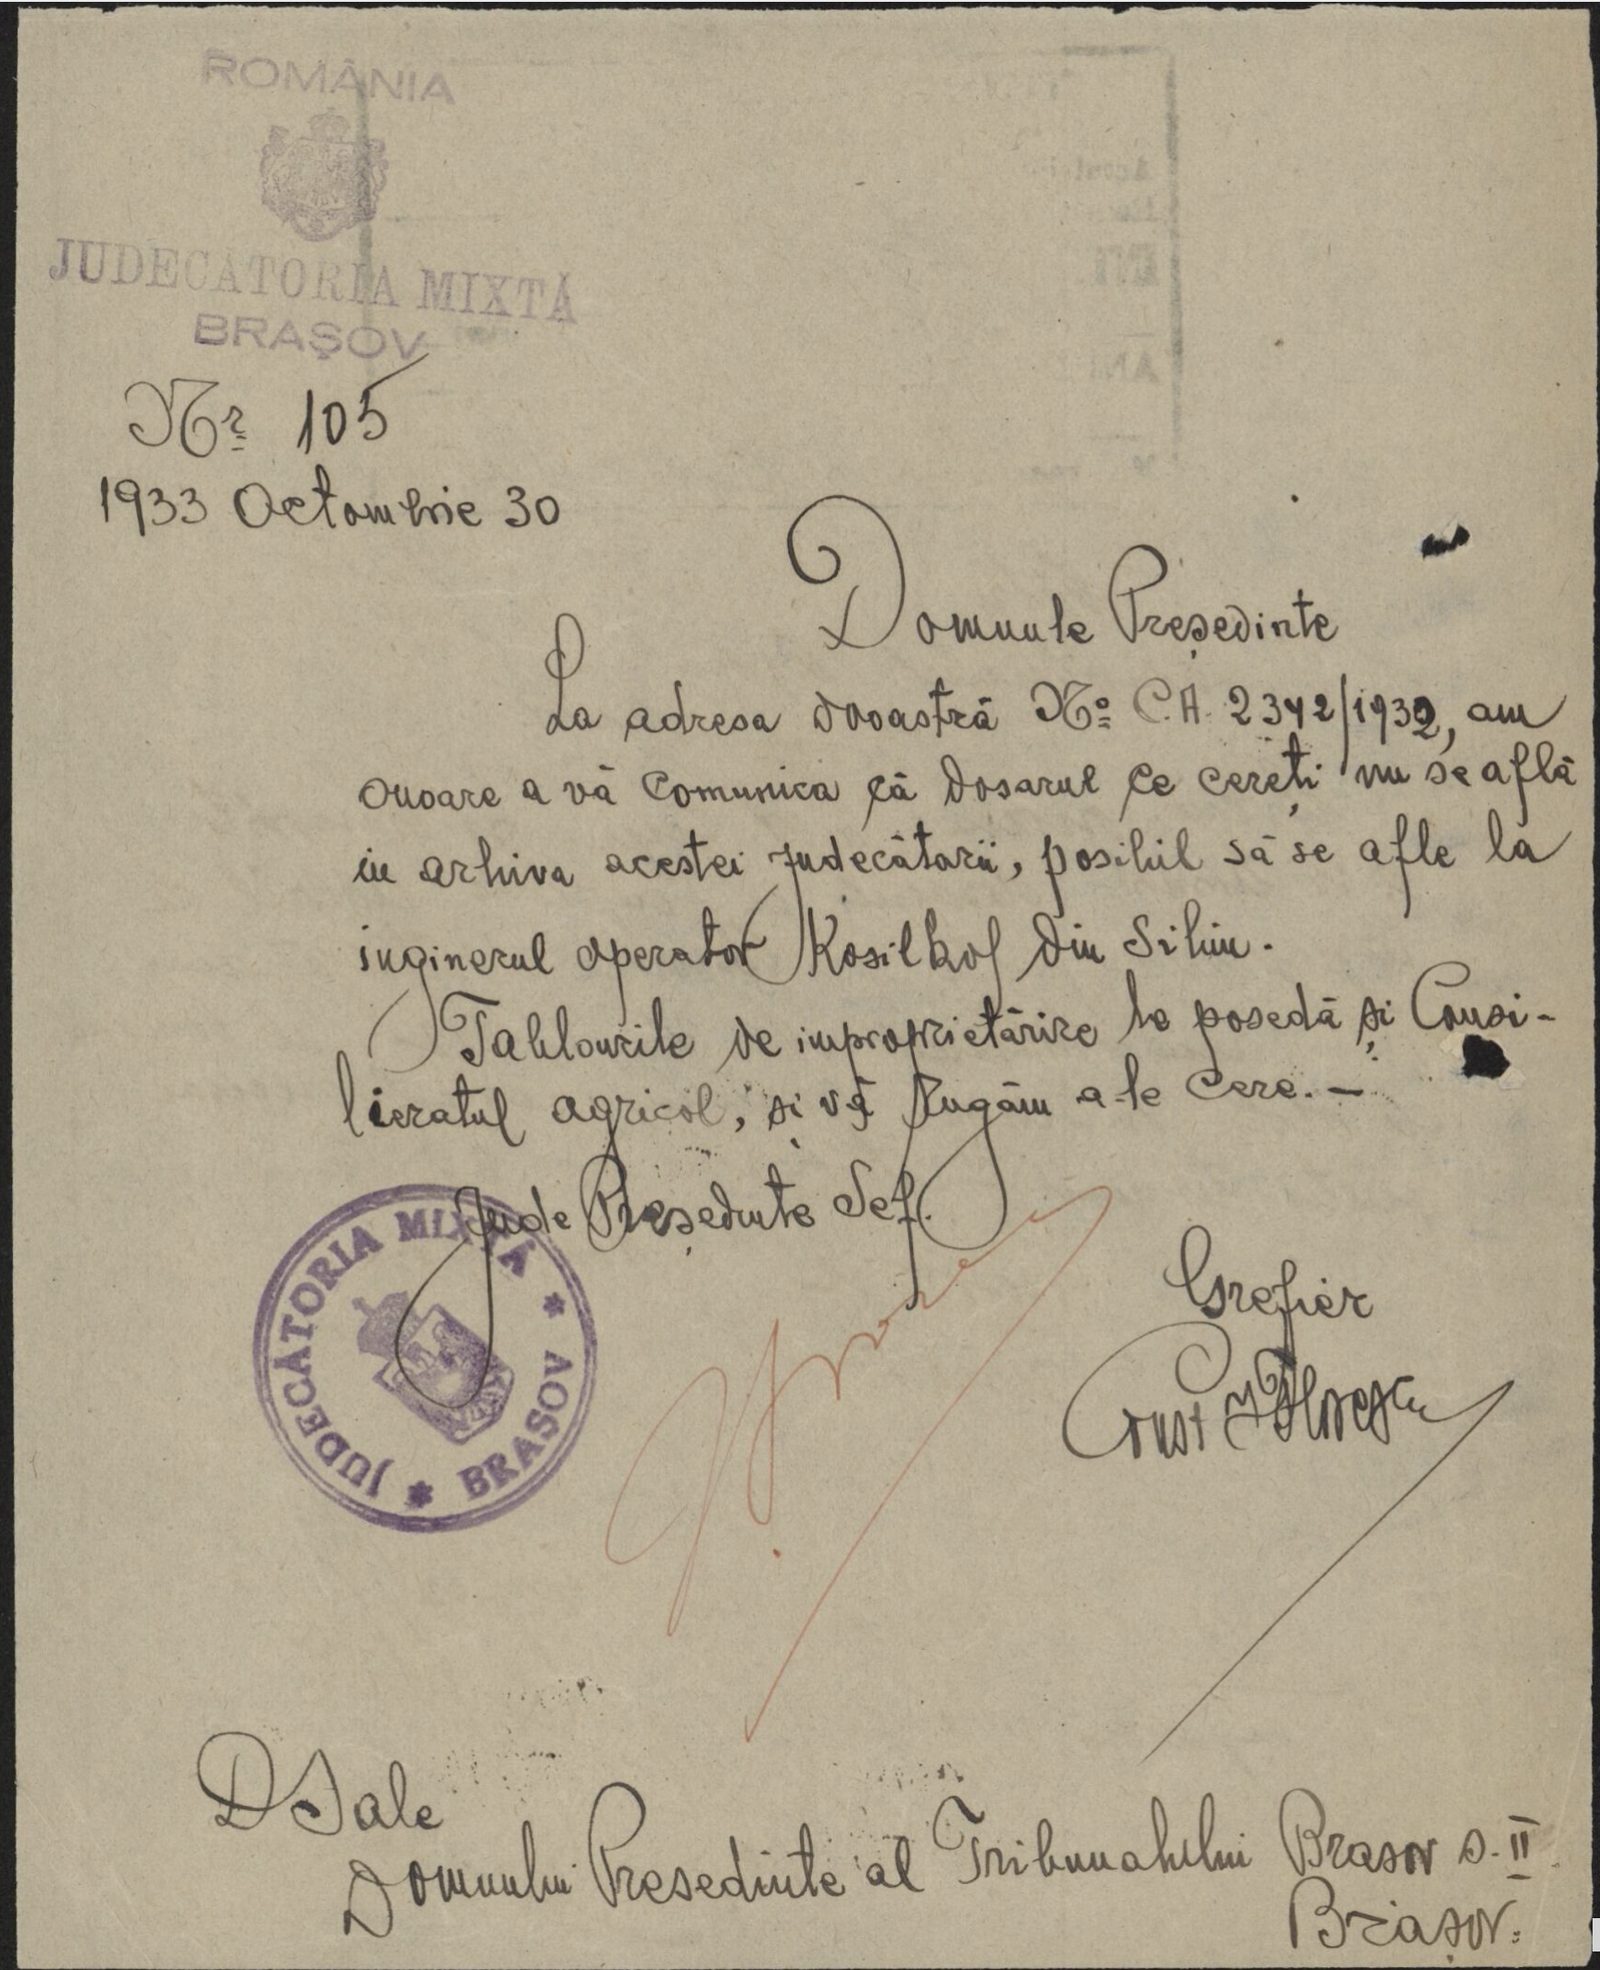 ROMÂNIA
JUDECĂTORIA MIXTĂ
BRAŞOV
Nr 105
1933 Octombrie 30
Domnule Preşedinte
La adresa Dvoastră No C.A. 2342/1932, am
onoare a vă comunica că dosarul ce cereţi nu se află
in arhiva acestei judecătorii, posibil să se afle la
inginerul operator din Sibiu.
Tablourile de improprietărire le posedă şi Consi-
lieratul agricol, şi vă rugăm a-le cere. —
Jude Preşedinte Sef.
JUDECĂTORIA MIXTĂ * BRAŞOV *
Grefier
Const
DSale
Domnului Presedinte al Tribunalului Brasov s. II
Braşov.